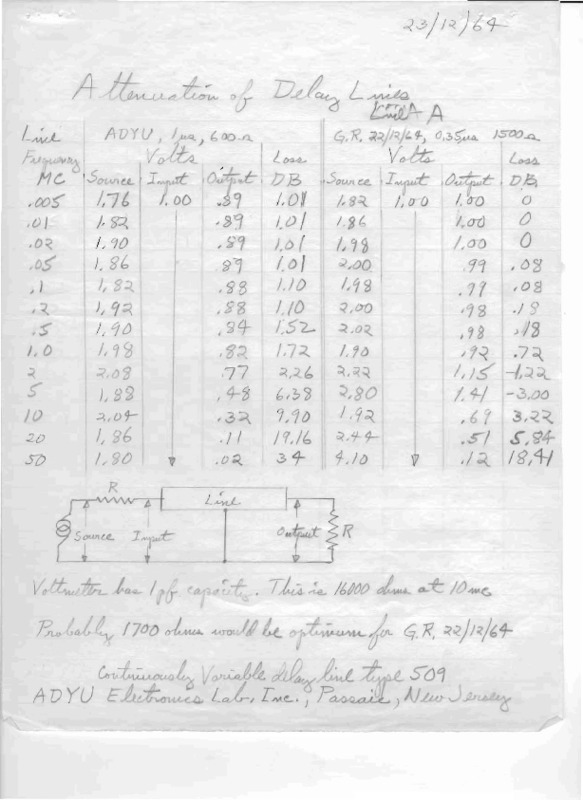 23/12/64
Attenuation of Delay Lines
Line A
Line ADYU, 1μs, 600Ω G.R. 22/12/64, 0.35μs 1500Ω
Frequency Volts Loss Volts Loss
MC Source Input Output DB Source Input Output DB
.005 1.76 1.00 .89 1.01 1.82 1.00 1.00 0
.01 1.82 .89 1.01 1.86 1.00 0
.02 1.90 .89 1.01 1.98 1.00 0
.05 1.86 .89 1.01 2.00 .99 .08
.1 1.82 .88 1.10 1.98 .99 .08
.2 1.92 .88 1.10 2.00 .98 .18
.5 1.90 .84 1.52 2.02 .98 .18
1.0 1.98 .82 1.72 1.90 .92 .72
2 2.08 .77 2.26 2.22 1.15 -1.22
5 1.88 .48 6.38 2.80 1.41 -3.00
10 2.04 .32 9.90 1.92 .69 3.22
20 1.86 .11 19.16 2.44 .51 5.84
50 1.80 .02 34 4.10 .12 18.41
R Line
Source Input Output R
Voltmeter has 1pf capacity. This is 16000 ohms at 10 mc
Probably 1700 ohms would be optimum for G.R. 22/12/64
Continuously Variable delay line type 509
ADYU Electronics Lab, Inc., Passaic, New Jersey